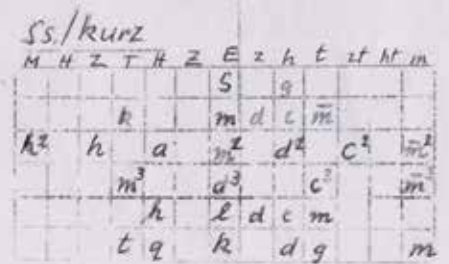 Ss./kurz
M H Z T H Z E z h t zt ht m
S g
k m d c m̄
h² h a m² d² c² m̄²
m³ d³ c³ m̄
h l d c m
t q k d g m